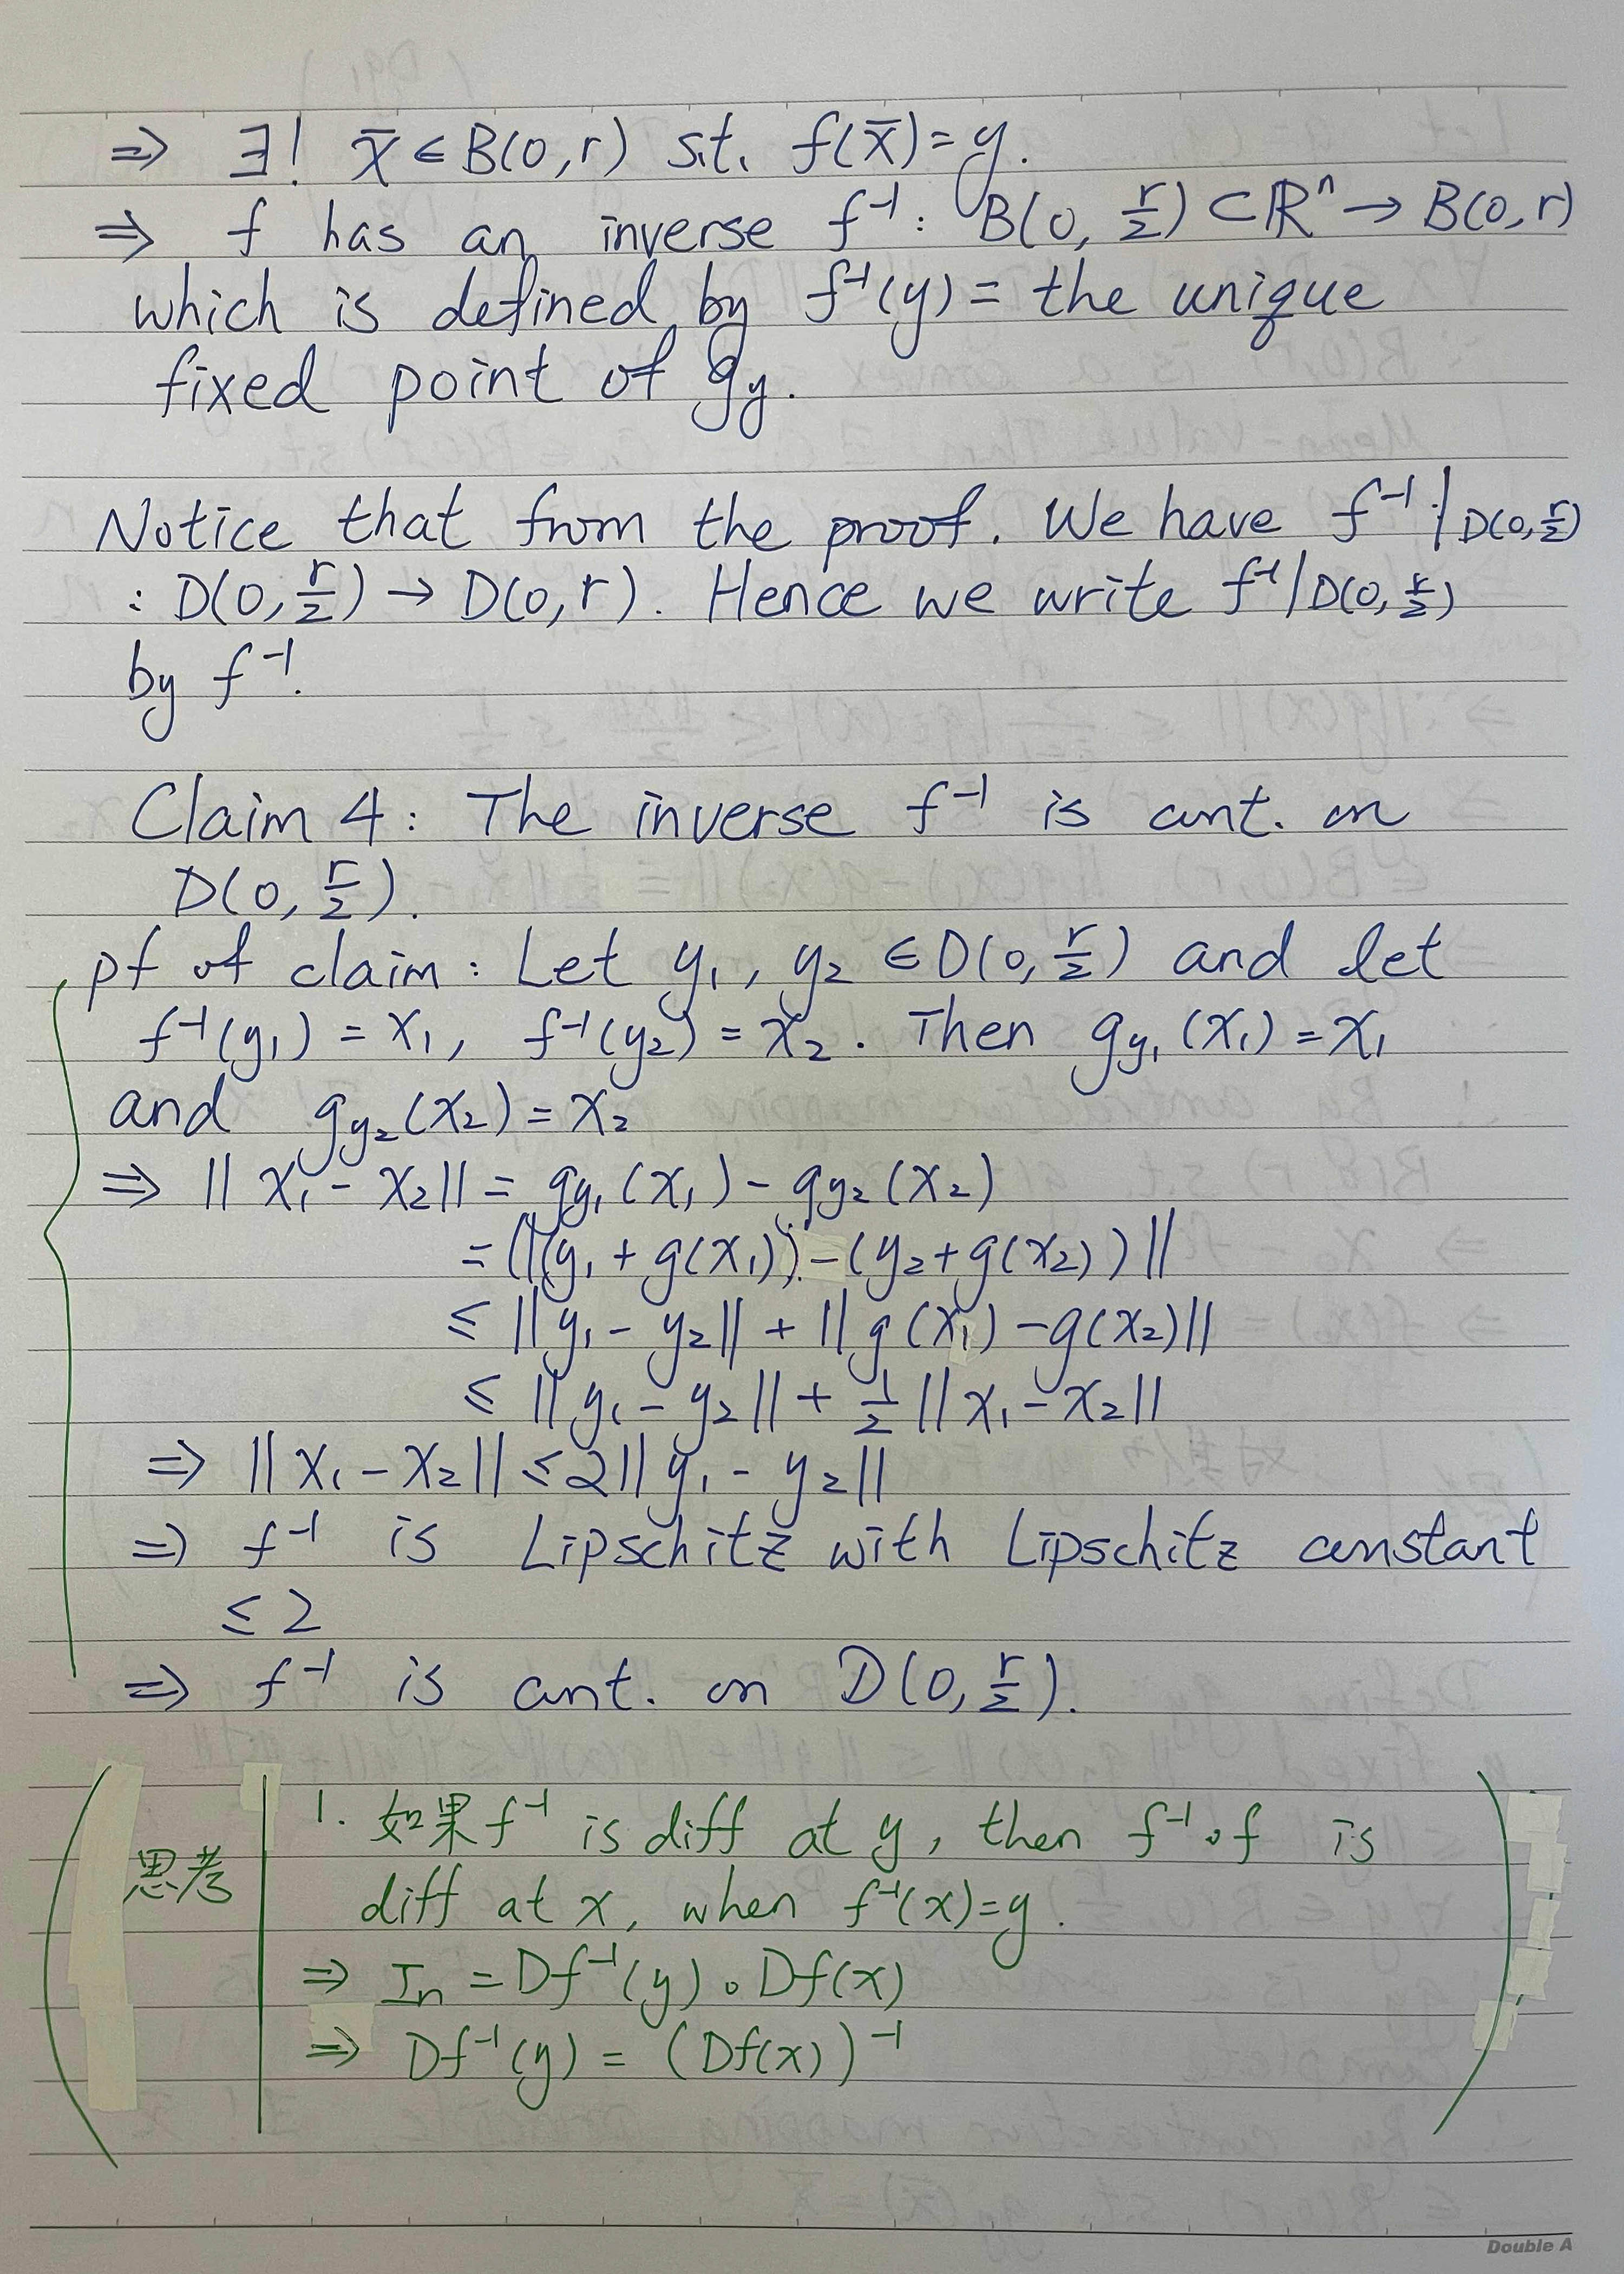 ⇒ ∃! x̄ ∈ B(0, r) s.t. f(x̄) = y.
⇒ f has an inverse f⁻¹: B(0, r/2) ⊂ ℝⁿ → B(0, r)
which is defined by f⁻¹(y) = the unique
fixed point of g_y.
Notice that from the proof. We have f⁻¹|D(0, r/2)
: D(0, r/2) → D(0, r). Hence we write f⁻¹|D(0, r/2)
by f⁻¹.
Claim 4: The inverse f⁻¹ is cont. on
D(0, r/2).
pf of claim: Let y₁, y₂ ∈ D(0, r/2) and let
f⁻¹(y₁) = x₁, f⁻¹(y₂) = x₂. Then g_y₁(x₁) = x₁
and g_y₂(x₂) = x₂
⇒ ||x₁ - x₂|| = g_y₁(x₁) - g_y₂(x₂)
= ||(y₁ + g(x₁)) - (y₂ + g(x₂))||
≤ ||y₁ - y₂|| + ||g(x₁) - g(x₂)||
≤ ||y₁ - y₂|| + 1/2 ||x₁ - x₂||
⇒ ||x₁ - x₂|| ≤ 2||y₁ - y₂||
⇒ f⁻¹ is Lipschitz with Lipschitz constant
≤ 2
⇒ f⁻¹ is cont. on D(0, r/2).
思考
1. 如果 f⁻¹ is diff at y, then f⁻¹∘f is
diff at x, when f⁻¹(x) = y.
⇒ In = Df⁻¹(y) ∘ Df(x)
⇒ Df⁻¹(y) = (Df(x))⁻¹
Double A